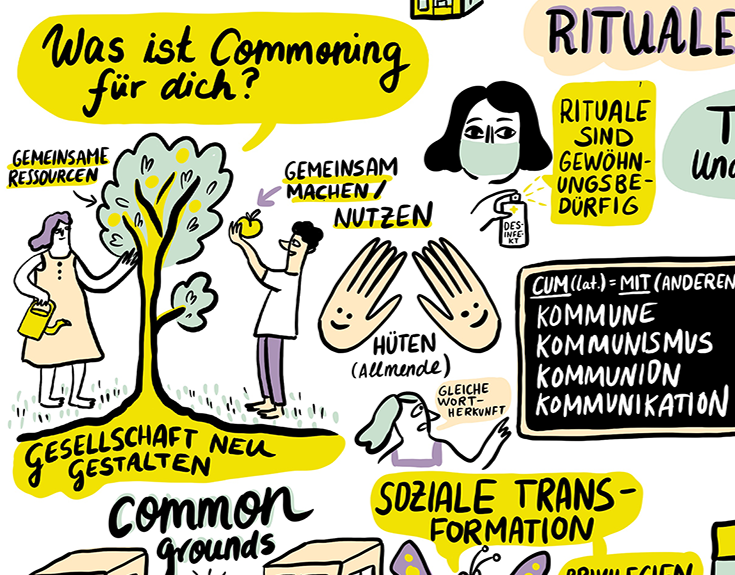 Was ist Commoning
für dich?
RITUALE
RITUALE
SIND
GEWÖHN-
UNGSBE-
DÜRFIG
DES-
INFE-
KT
GEMEINSAME
RESSOURCEN
GEMEINSAM
MACHEN/
NUTZEN
HÜTEN
(Allmende)
CUM (lat.) = MIT (ANDEREN
KOMMUNE
KOMMUNISMUS
KOMMUNION
KOMMUNIKATION
GLEICHE
WORT-
HERKUNFT
GESELLSCHAFT NEU
GESTALTEN
common
grounds
SOZIALE TRANS-
FORMATION
PRIVILEGIEN